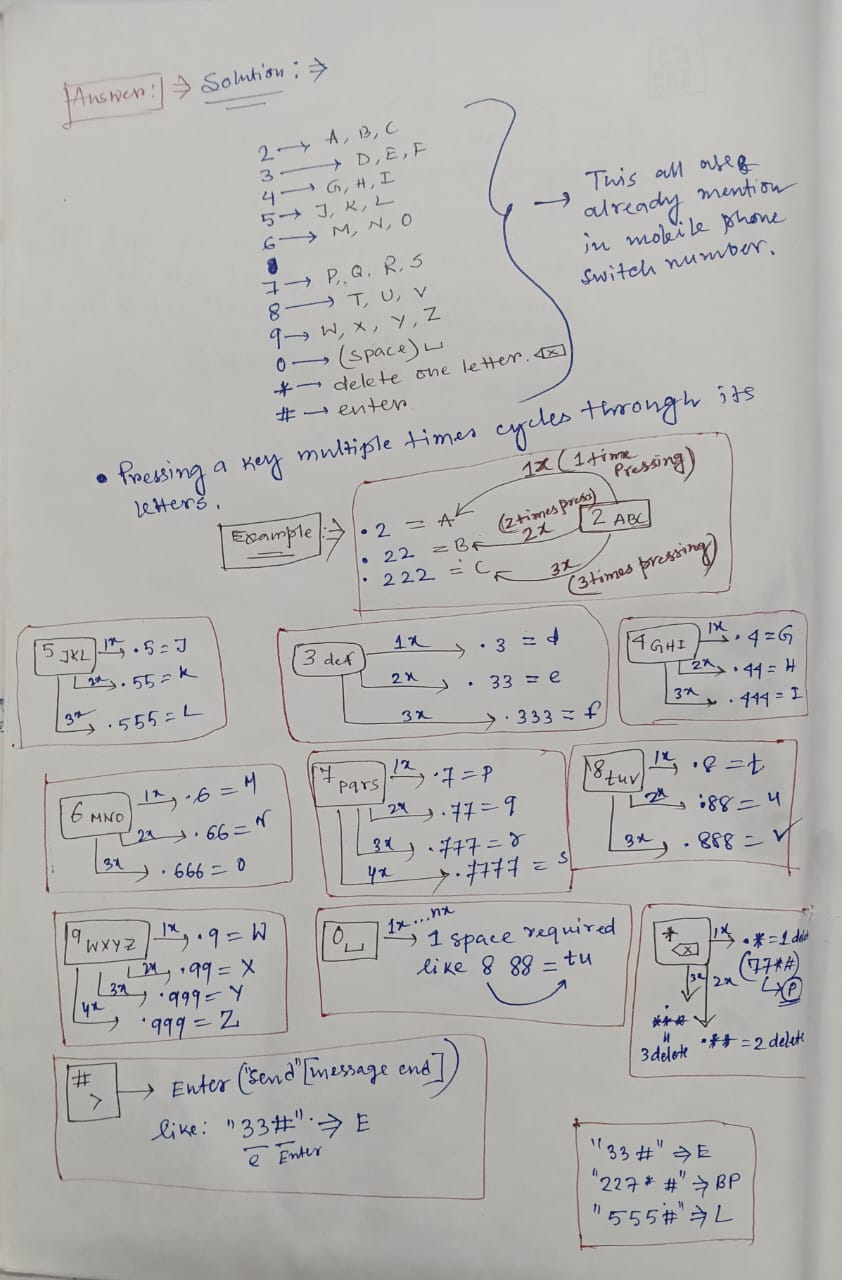 Answer: ⇒ Solution: ⇒
2 → A, B, C
3 → D, E, F
4 → G, H, I
5 → J, K, L
6 → M, N, O
7 → P, Q, R, S
8 → T, U, V
9 → W, X, Y, Z
0 → (space) ␣
* → delete one letter. ⌫
# → enter.
→ This all are
already mention
in mobile phone
switch number.
• Pressing a key multiple times cycles through its
letters.
Example :⇒
1x (1 time
Pressing)
• 2 = A
(2 times press)
2x
2 ABC
• 22 = B
• 222 = C
3x
(3 times pressing)
5 JKL 1x → • 5 = J
2x → • 55 = K
3x → • 555 = L
3 def 1x → • 3 = d
2x → • 33 = e
3x → • 333 = f
4 GHI 1x → • 4 = G
2x → • 44 = H
3x → • 444 = I
6 MNO 1x → • 6 = M
2x → • 66 = N
3x → • 666 = O
7 pqrs 1x → • 7 = P
2x → • 77 = q
3x → • 777 = r
4x → • 7777 = s
8 tuv 1x → • 8 = t
2x → • 88 = u
3x → • 888 = V
9 WXYZ 1x → • 9 = W
2x → • 99 = X
3x → • 999 = Y
4x → • 999 = Z
0 ␣ 1x...nx → 1 space required
like 8 88 = tu
* ⌫ 1x → • * = 1 del
(77*#)
↳ P
3x 2x
***
"
3 delete • ** = 2 delete
# > → Enter ("Send" [message end])
like: "33#" ⇒ E
e Enter
"33 #" ⇒ E
"227* #" ⇒ BP
"555#" ⇒ L